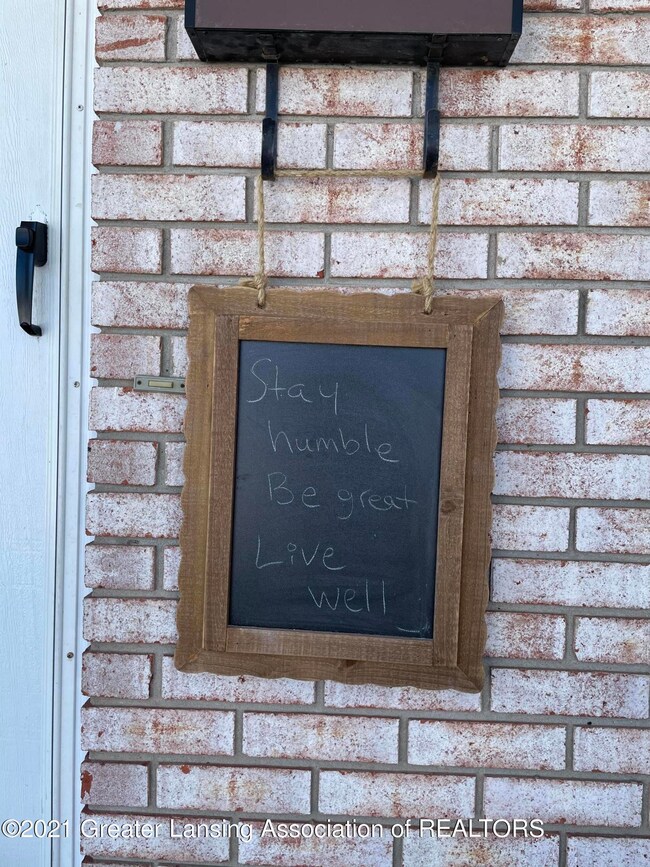 Stay
humble
Be great
Live
well
©2021 Greater Lansing Association of REALTORS